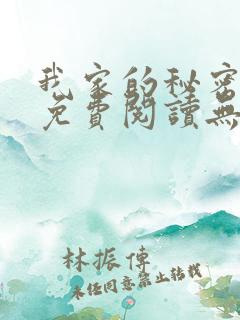 我家的秘密
免費閱讀無
林振傳
未任同意禁止转載